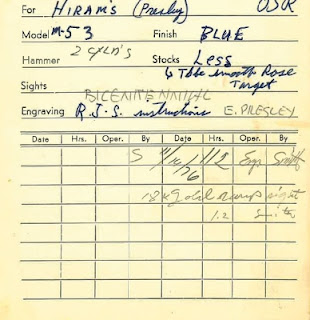 For HIRAM'S (Presley) OSR
Model M-53 Finish BLUE
Hammer 2 CYLN'S Stocks Less
to Tble smooth Rose
Target
Sights BICENTENNIAL
Engraving R.J.S. instructions E. PRESLEY
Date Hrs. Oper. By Date Hrs. Oper. By
S 11/16/76 112 Engr Smith
18K gold ramp sight
1.2 Smith